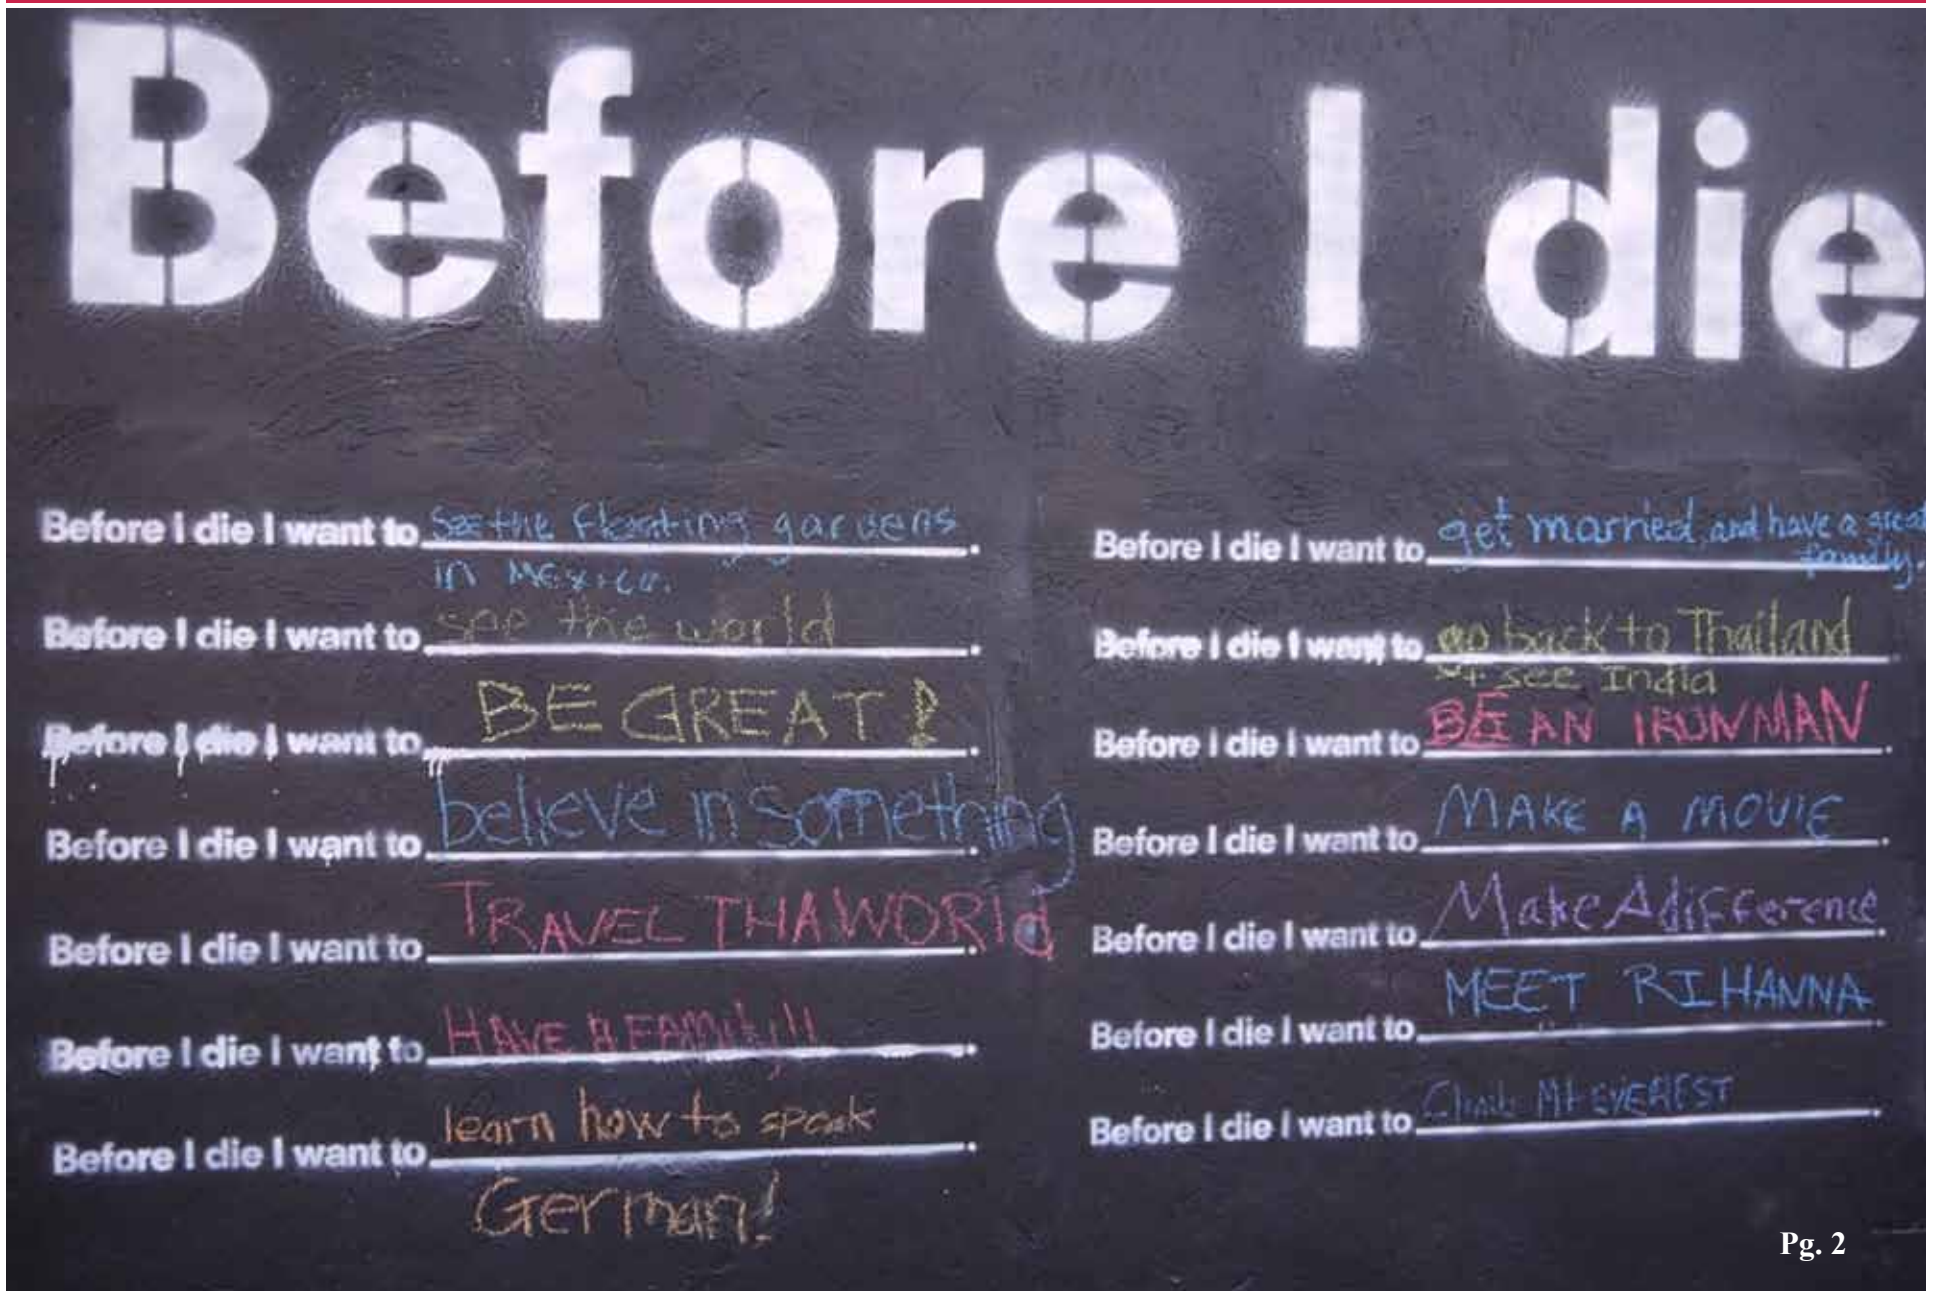 Before I die
Before I die I want to see the floating gardens
in Mexico.
Before I die I want to see the world
Before I die I want to BE GREAT!
Before I die I want to believe in something
Before I die I want to TRAVEL THA WORld
Before I die I want to HAVE A FAMily!!
Before I die I want to learn how to speak
German!
Before I die I want to get married, and have a great
family.
Before I die I want to go back to Thailand
+ see India
Before I die I want to BE AN IRONMAN
Before I die I want to MAKE A MOVIE
Before I die I want to Make A difference
Before I die I want to MEET RIHANNA
Before I die I want to Climb Mt EVEREST
Pg. 2